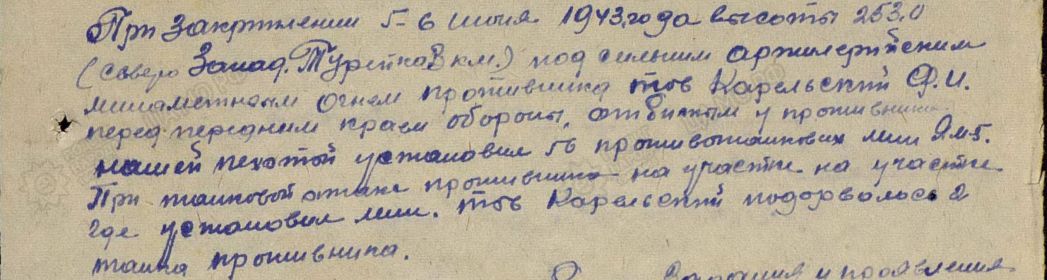 При закреплении 5-6 июня 1943 года высоты 253.0
(северо Запад. Турейка 8 км.) под сильным артилерийским
минаметным огнем противника тов Карельский Ф.И.
перед передним краем обороны, отбитым у противника
нашей пехотой установил 56 противотанковых мин ЯМ5.
При танковой атаке противника на участке на участке
где установил мин. тов Карельский подорвалось 2
танка противника.